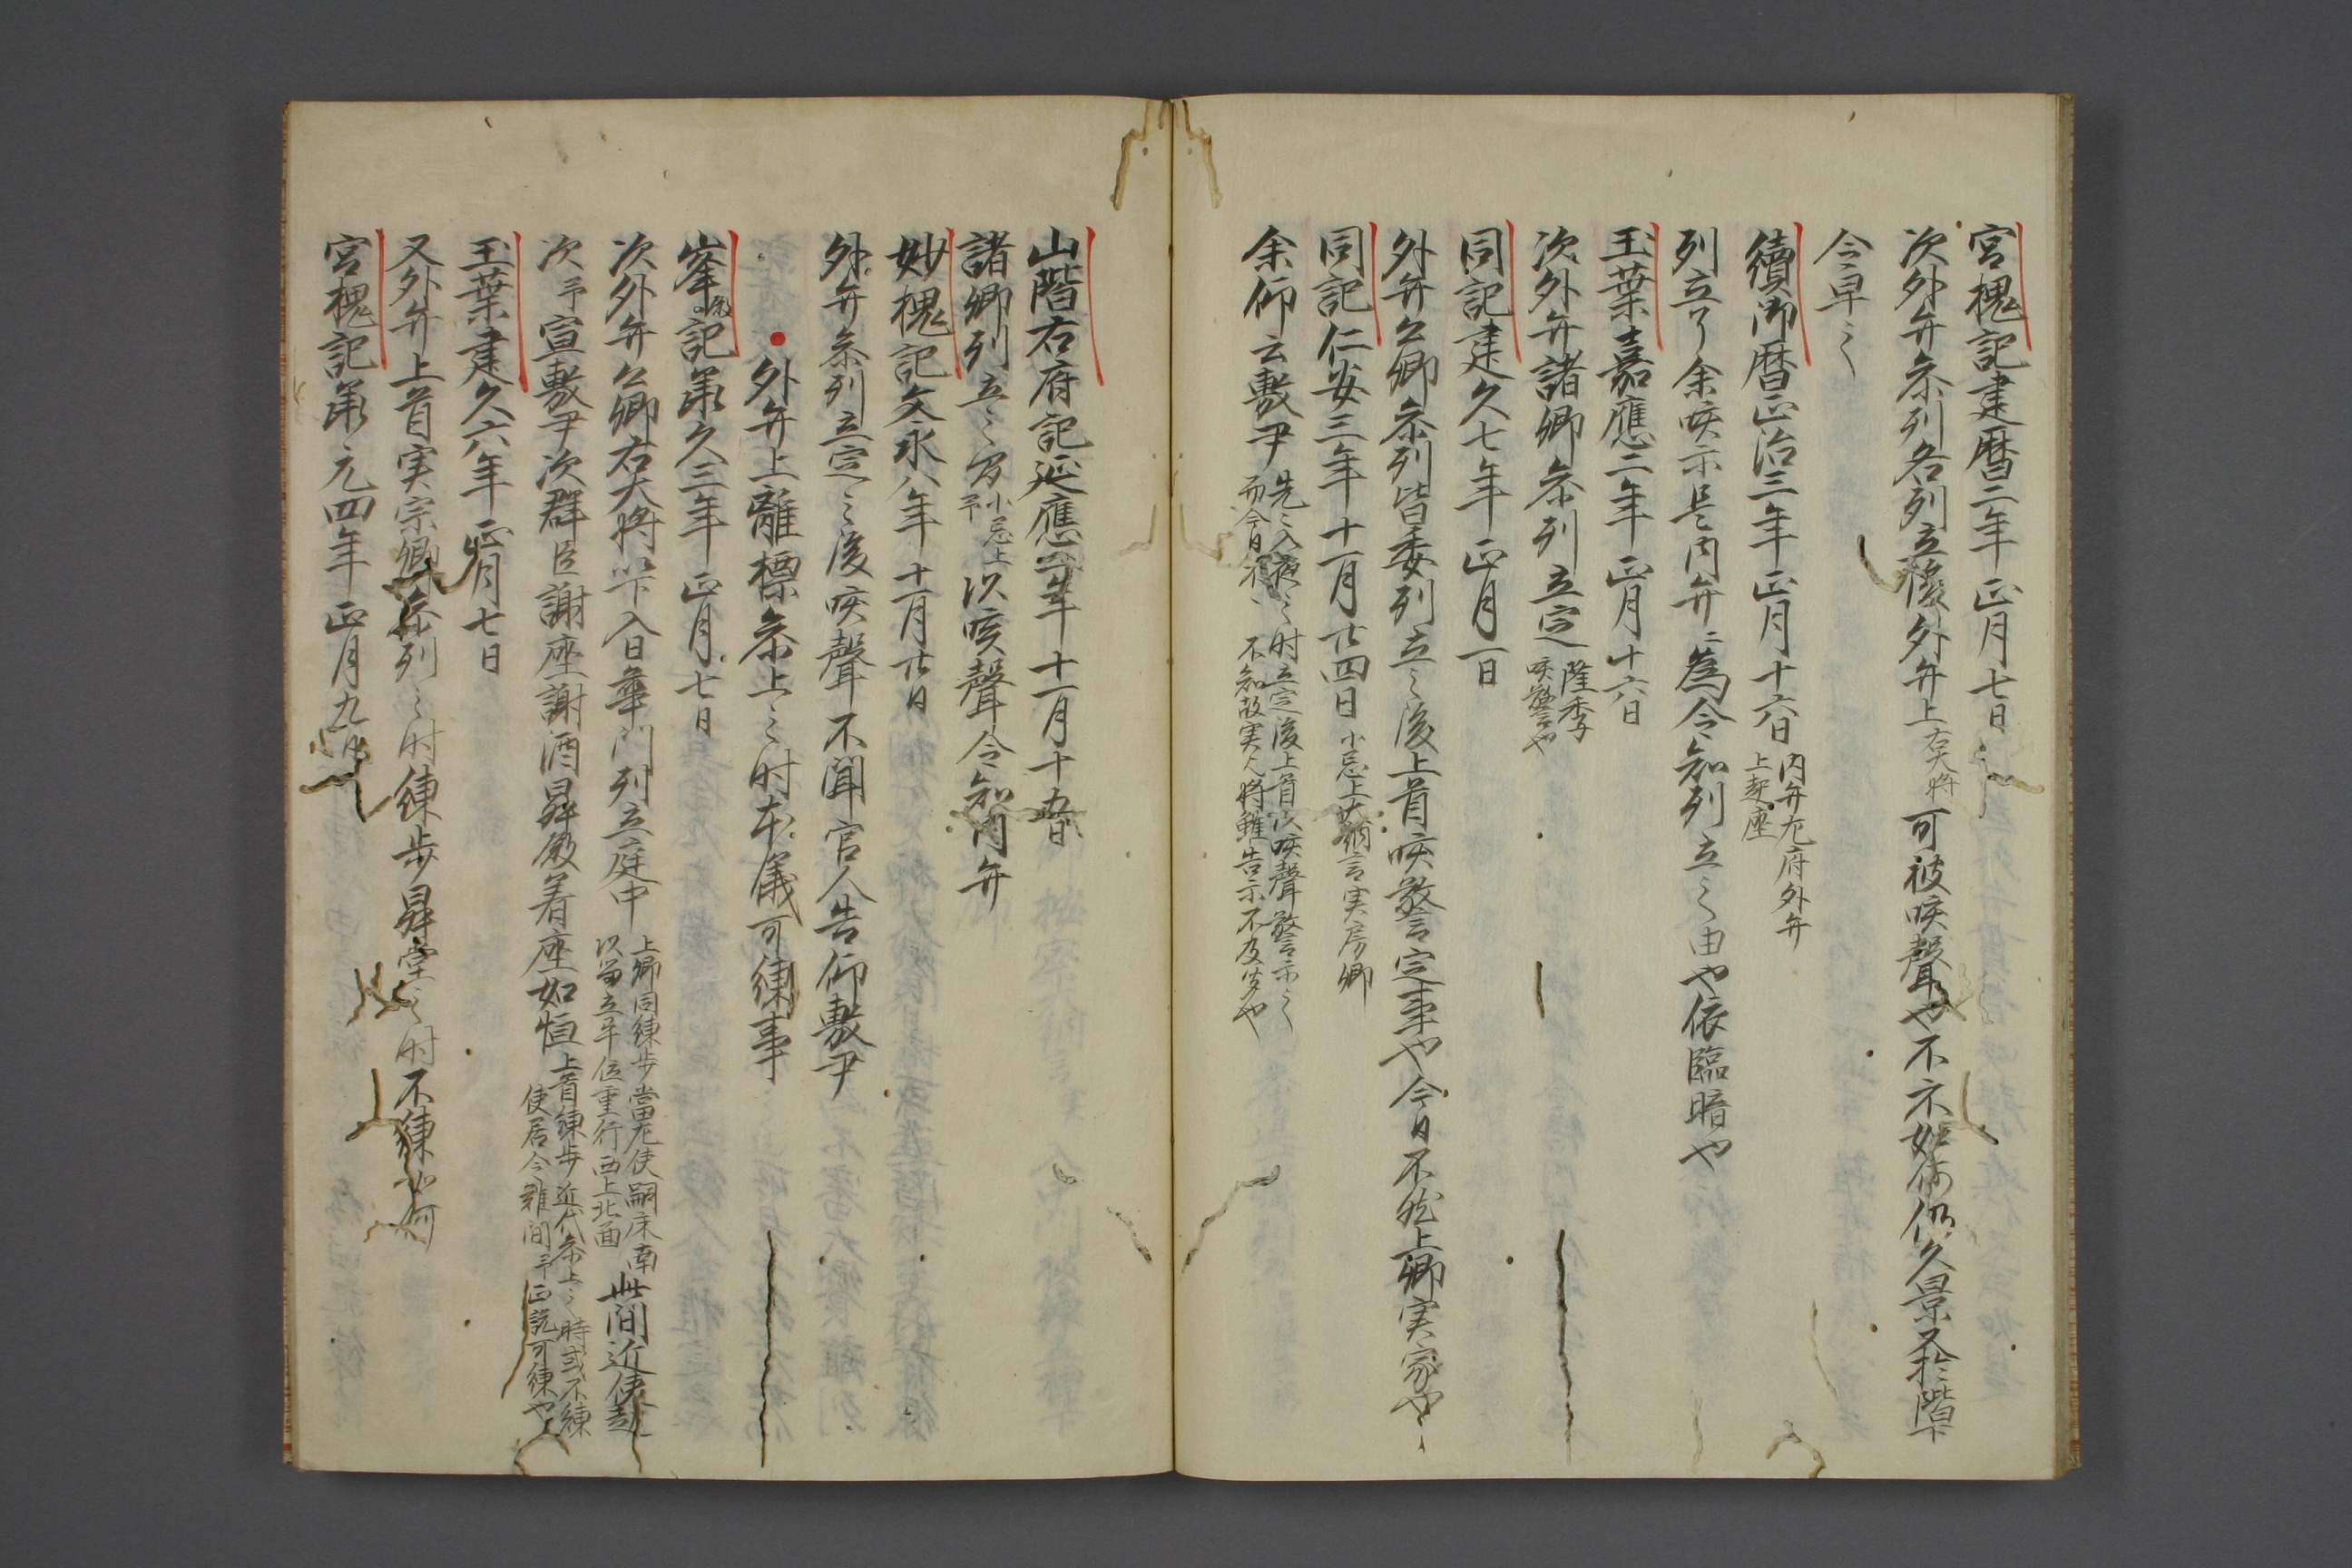 宮槐記建暦二年正月七日
次外弁参列各列立後外弁上右大将可被咳聲也不示如儀仍久景又於階下
令早之
續御暦正治三年正月十六日内弁左府外弁上起座
列立了余咳示是内弁ニ為令知列立之由也依臨暗也
玉葉嘉應二年正月十六日
次外弁諸卿参列立定隆季咳警也
同記建久七年正月一日
外弁公卿参列皆委列立之後上首咳警定事也今日不然上卿実家也
同記仁安三年十一月廿四日小忌上大納言実房卿
余仰云敷尹先々入夜之时立定後上首以咳聲警示之而今日不、不知故実人将雖告示不及
山階右府記延應元年十一月十九日
諸卿列立之間小忌上予以咳聲令知内弁
妙槐記文永八年十一月廿日
外弁参列立定之後咳聲不聞官人告仰敷尹
外弁上離標参上之时本儀可練事
峯殿記承久三年正月七日
次外弁公卿右大将以下入日華门列立庭中上卿同練歩當左伏嗣床南以留立平位重行西上北面此间近使起
次予宣敷尹次群臣謝座謝酒昇殿着座如恒上首練歩近代参上之時或不練使居今雖间予正説可練也
玉葉建久六年正月七日
又外弁上首実宗卿参列之时練歩昇堂之时不練如何
宮槐記承元四年正月九日